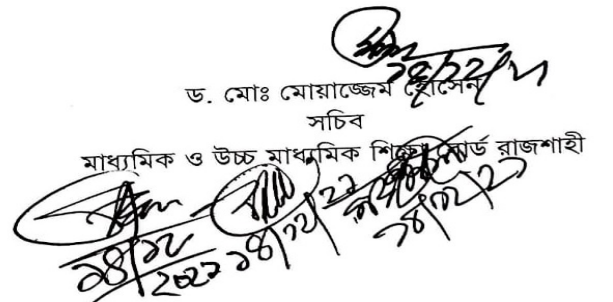 ১৪/১২/২১
ড. মোঃ মোয়াজ্জেম হোসেন
সচিব
মাধ্যমিক ও উচ্চ মাধ্যমিক শিক্ষা বোর্ড রাজশাহী
১৪/১২/২১
১৪/১২
২০২১
১৪/১২/২১